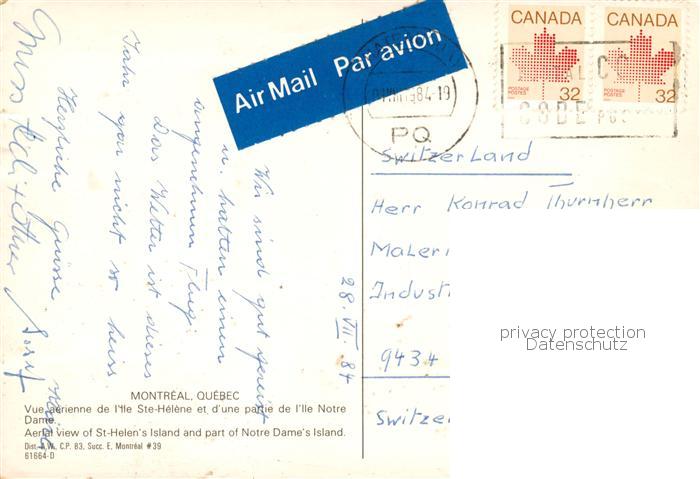 Air Mail Par avion
CANADA CANADA
POSTAGE POSTES 32 POSTAGE POSTES 32
1984-19
PQ
CODE
28. VII. 84
Wir sind gut gereist
u. hatten einen
angenehmen Flug.
Das Wetter ist dieses
Jahr gar nicht so heiss
Herzliche Grüsse
Switzerland
Herr Konrad Thurnherr
Maler
Indust
9434
Switzer
privacy protection
Datenschutz
MONTRÉAL, QUÉBEC
Vue aérienne de l'Ile Ste-Hélène et d'une partie de l'Ile Notre
Dame.
Aerial view of St-Helen's Island and part of Notre Dame's Island.
Dist. A.W., C.P. 83, Succ. E, Montréal #39
61664-D